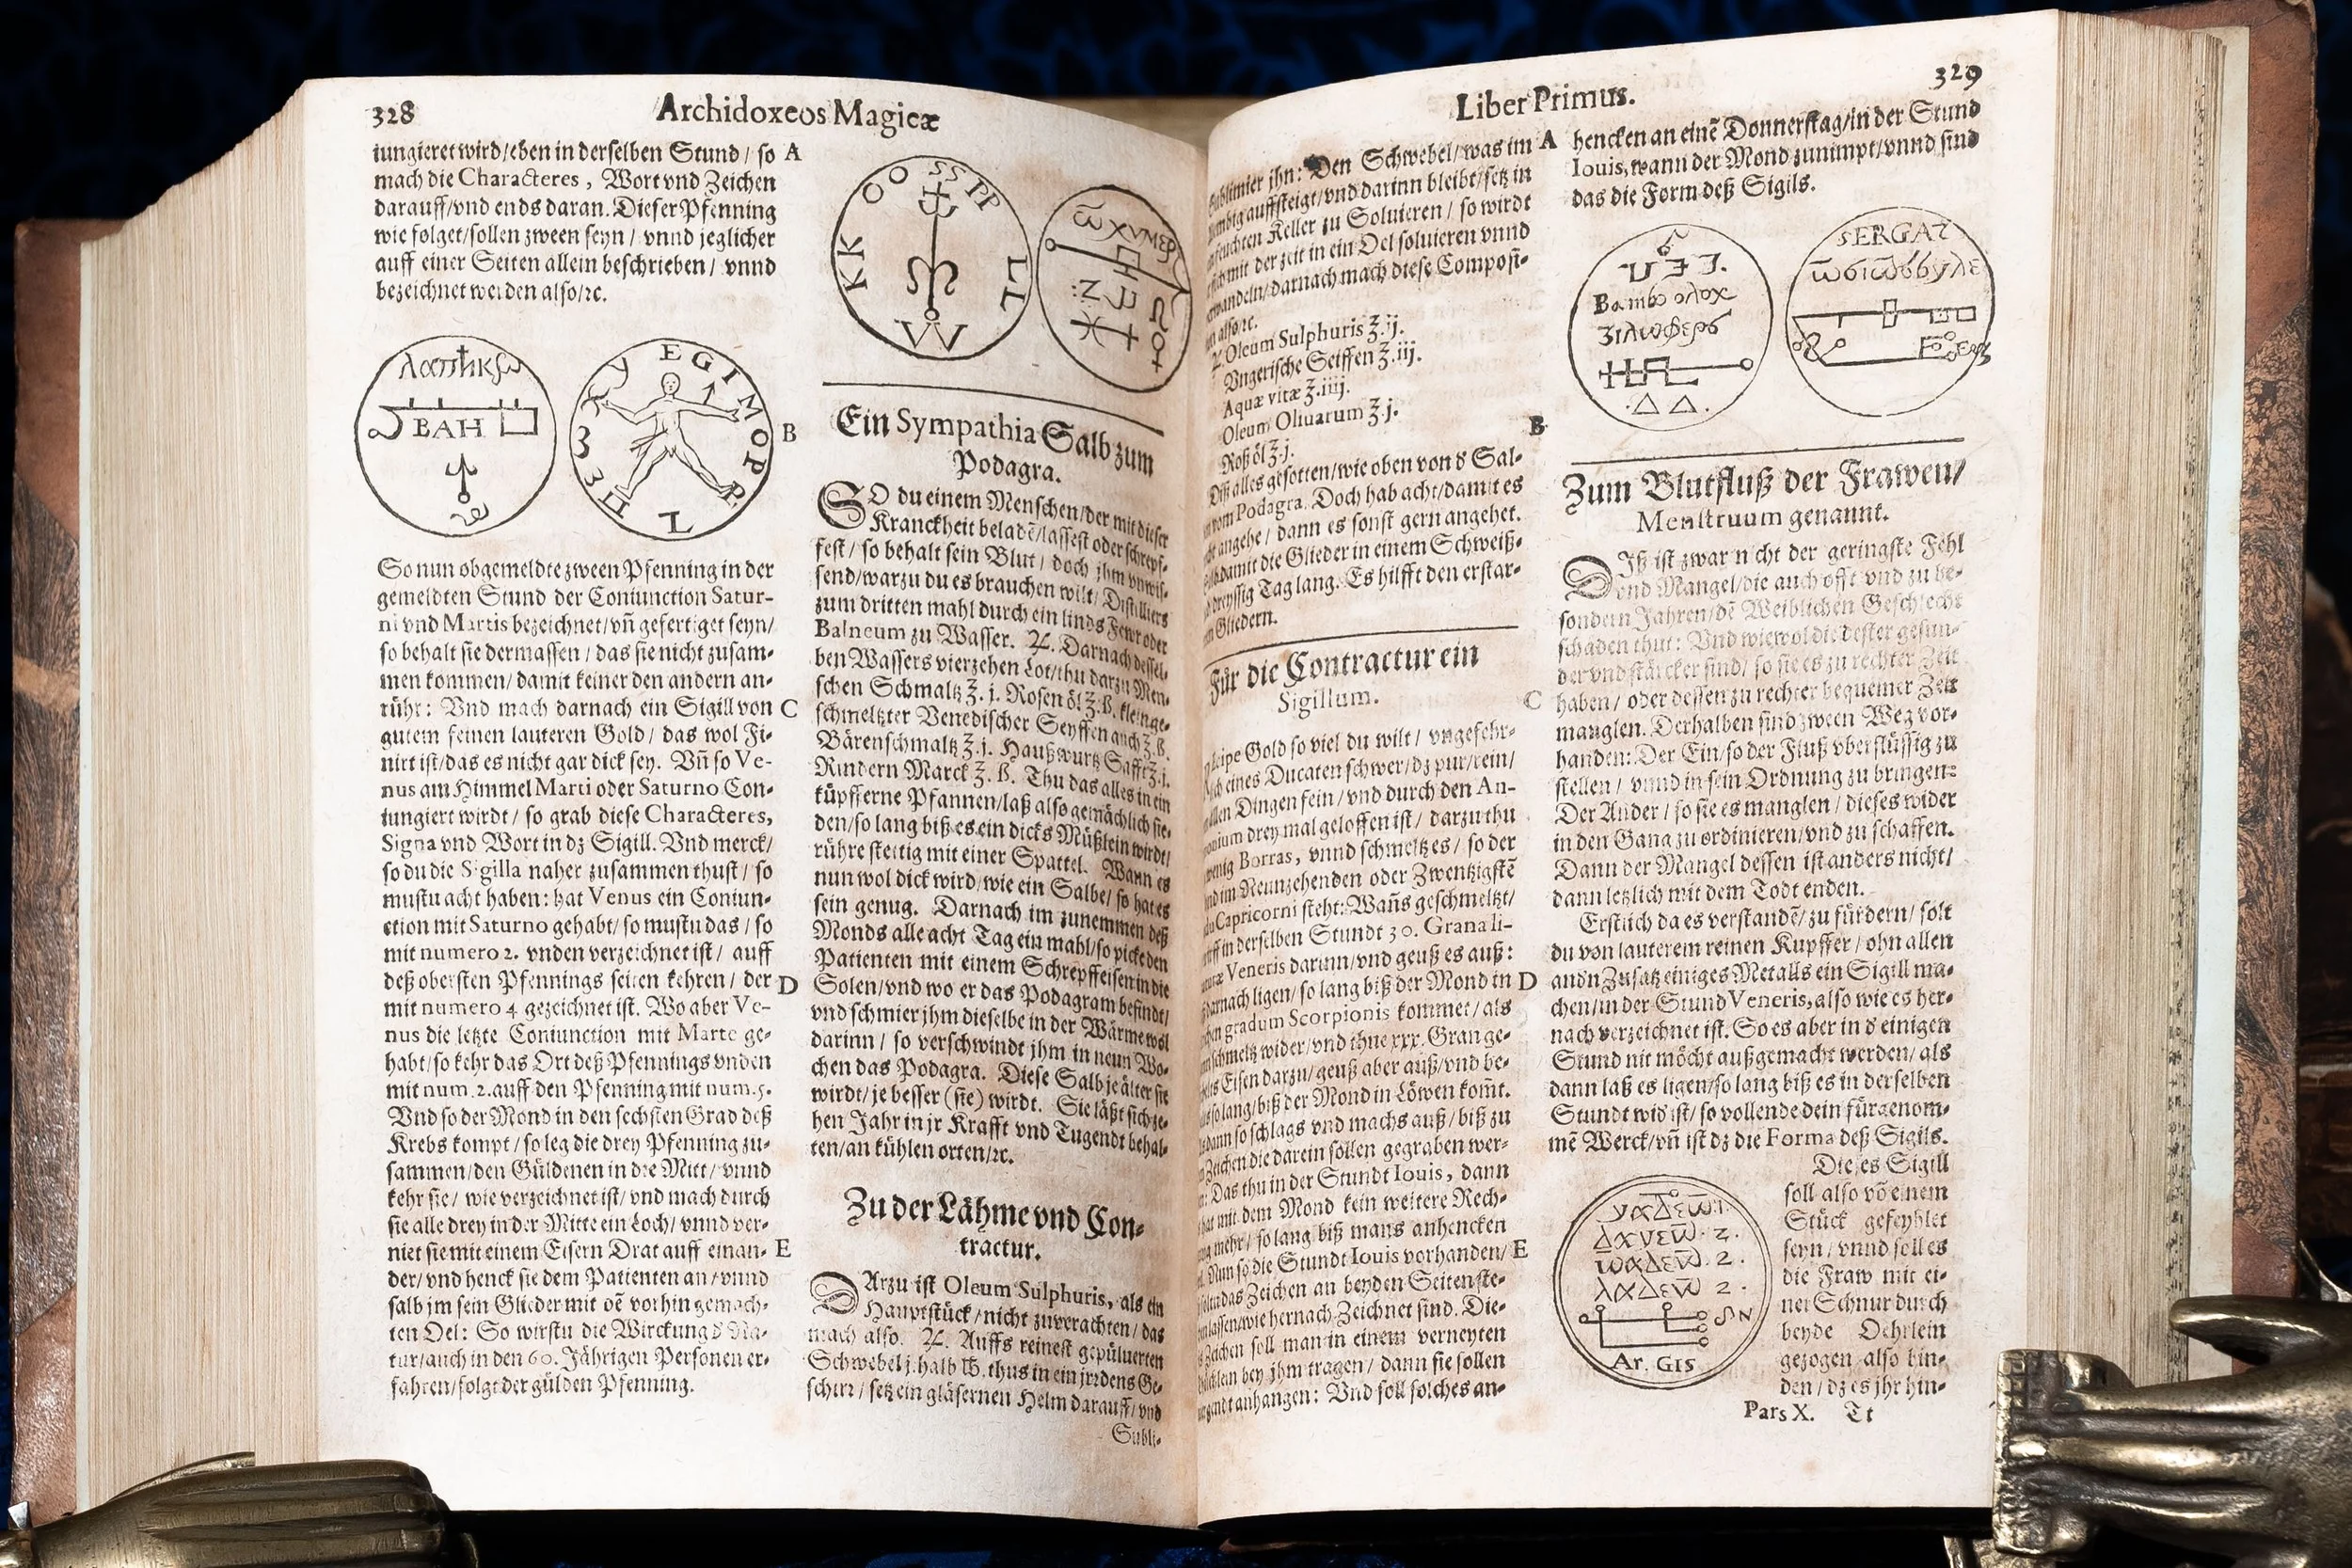 328
Archidoxeos Magicæ
iungieret wird/eben in derselben Stund / so A
mach die Characteres, Wort vnd Zeichen
darauff/vnd ends daran. Dieser Pfenning
wie folget/sollen zween seyn / vnnd jeglicher
auff einer Seiten allein beschrieben / vnnd
bezeichnet werden also/ꝛc.
BAH
E G I M O P R L H 3 3 Y
B
So nun obgemeldte zween Pfenning in der
gemeldten Stund der Coniunction Satur-
ni vnd Martis bezeichnet/vñ gefertiget seyn/
so behalt sie dermassen / das sie nicht zusam-
men kommen/ damit keiner den andern an-
rühr: Vnd mach darnach ein Sigill von C
gutem feinen lauteren Gold / das wol Fi-
nirt ist/das es nicht gar dick sey. Vñ so Ve-
nus am Himmel Marti oder Saturno Con-
iungiert wirdt / so grab diese Characteres,
Signa vnd Wort in dz Sigill. Vnd merck/
so du die Sigilla naher zusammen thust / so
mustu acht haben: hat Venus ein Coniun-
ction mit Saturno gehabt/ so mustu das / so
mit numero 2. vnden verzeichnet ist / auff
deß obersten Pfennings seiten kehren / der D
mit numero 4 gezeichnet ist. Wo aber Ve-
nus die letzte Coniunction mit Marte ge-
habt/so kehr das Ort deß Pfennings vnden
mit num. 2. auff den Pfenning mit num. 5.
Vnd so der Mond in den sechsten Grad deß
Krebs kompt / so leg die drey Pfenning zu-
sammen/den Güldenen in die Mitt / vnnd
kehr sie / wie verzeichnet ist/ vnd mach durch
sie alle drey in der Mitte ein Loch/ vnnd ver-
niet sie mit einem Eisern Drat auff einan- E
der/ vnd henck sie dem Patienten an / vnnd
salb jm sein Glieder mit dẽ vorhin gemach-
ten Oel: So wirstu die Wirckung d Na-
tur/auch in den 60. Jährigen Personen er-
fahren/folgt der gülden Pfenning.
OO SS PP
KK LL
VV
Ein Sympathia Salb zum
Podagra.
SO du einem Menschen/der mit dieser
Kranckheit beladẽ/lassest oder schrepf-
fest / so behalt sein Blut / doch jhm vnwis-
send/warzu du es brauchen wilt / Distilliers
zum dritten mahl durch ein linds Fewr oder
Balneum zu Wasser. ♃. Darnach dessel-
ben Wassers vierzehen Lot/thu darzu Men-
schen Schmaltz ℥. j. Rosen öl ℥.ß. kleinge-
schmeltzter Venedischer Seyffen auch ℥.ß.
Bärenschmaltz ℥.j. Haußwurtz Safft ℥.j.
Rindern Marck ℥. ß. Thu das alles in ein
küpfferne Pfannen/laß also gemächlich sie-
den/so lang biß es ein dicks Müßlein wirdt/
rühre stettig mit einer Spattel. Wann es
nun wol dick wird/wie ein Salbe/ so hat es
sein genug. Darnach im zunemmen deß
Monds alle acht Tag ein mahl/so picke den
Patienten mit einem Schrepffeisen in die
Solen/vnd wo er das Podagram befindt/
vnd schmier jhm dieselbe in der Wärme wol
darinn / so verschwindt jhm in neun Wo-
chen das Podagra. Diese Salb je älter sie
wirdt/ je besser (sie) wirdt. Sie läßt sich ze-
hen Jahr in jr Krafft vnd Tugendt behal-
ten/an kühlen orten/ꝛc.
Zu der Lähme vnd Con-
tractur.
DArzu ist Oleum Sulphuris, als ein
Hauptstück / nicht zuverachten / das
mach also. ♃. Auffs reinest gepüluerten
Schwebel j. halb ℔. thus in ein jrrdens Ge-
schirr / setz ein gläsernen Helm darauff/ vnd
Subli-
329
Liber Primus.
Sublimier jhn: Den Schwebel/was im A
auffsteigt/vnd darinn bleibt/setz in
feuchten Keller zu Soluieren / so wirdt
mit der zeit in ein Oel soluieren vnnd
wandeln/darnach mach diese Composi-
also/ꝛc.
Oleum Sulphuris ℥.ij.
Vngerische Seiffen ℥.iij.
Aquæ vitæ ℥.iiij.
Oleum Oliuarum ℥.j.
Roß öl ℥.j.
B
Diß alles gesotten/wie oben von d Sal-
vom Podagra. Doch hab acht/damit es
angehe / dann es sonst gern angehet.
damit die Glieder in einem Schweiß-
dreyssig Tag lang. Es hilfft den erstar-
Gliedern.
Für die Contractur ein
Sigillum.
C
Gold so viel du wilt / vngefehr-
eines Ducaten schwer/dz pur/rein/
allen Dingen fein / vnd durch den An-
drey mal geloffen ist / darzu thu
wenig Borras, vnnd schmeltz es / so der
im Neunzehenden oder Zwentzigstẽ
Capricorni steht: Wañs geschmeltzt/
in derselben Stundt 30. Grana li-
Veneris darinn/vnd geuß es auß:
darnach ligen/so lang biß der Mond in D
gradum Scorpionis kommet / als
schmeltz wider/vnd thue xxx. Gran ge-
Eisen darzu/geuß aber auß/vnd be-
so lang/biß der Mond in Löwen kom̃t.
dann so schlags vnd machs auß / biß zu
Zeichen die darein sollen gegraben wer-
Das thu in der Stundt Iouis, dann
hat mit dem Mond kein weitere Rech-
mehr / so lang biß mans anhencken
Nun so die Stundt Iouis vorhanden/ E
das Zeichen an beyden Seiten ste-
lassen/wie hernach Zeichnet sind. Die-
Zeichen soll man in einem verneyten
bey jhm tragen / dann sie sollen
anhangen: Vnd soll solches an-
hencken an einẽ Donnerstag/in der Stund
Iouis, wann der Mond zunimpt/vnnd sind
das die Form deß Sigils.
SERGAT
Zum Blutfluß der Frawen/
Menstruum genannt.
DIß ist zwar nicht der geringste Fehl
vnd Mangel/die auch offt vnd zu be-
sondern Jahren/dẽ Weiblichen Geschlecht
schaden thut: Vnd wiewol die dester gesun-
der vnd stärcker sind/ so sie es zu rechter Zeit
haben / oder dessen zu rechter bequemer Zeit
manglen. Derhalben sind zween Weg vor-
handen: Der Ein/so der Fluß vberflüssig zu
stellen / vnnd in sein Ordnung zu bringen:
Der Ander / so sie es manglen / dieses wider
in den Gang zu ordinieren/vnd zu schaffen.
Dann der Mangel dessen ist anders nicht/
dann letzlich mit dem Todt enden.
Erstlich da es verstandẽ/zu fürdern / solt
du von lauterem reinen Kupffer / ohn allen
andn Zusatz einiges Metalls ein Sigill ma-
chen/in der Stund Veneris, also wie es her-
nach verzeichnet ist. So es aber in d einigen
Stund nit möcht außgemacht werden/ als
dann laß es ligen/so lang biß es in derselben
Stundt wid ist/ so vollende dein fürgenom-
mẽ Werck/vñ ist dz die Forma deß Sigils.
Ar. GIS
Dieses Sigill
soll also võ einem
Stück gefeyhlet
seyn / vnnd soll es
die Fraw mit ei-
ner Schnur durch
beyde Oehrlein
gezogen also bin-
den / dz es jhr hin-
Pars X. Tt